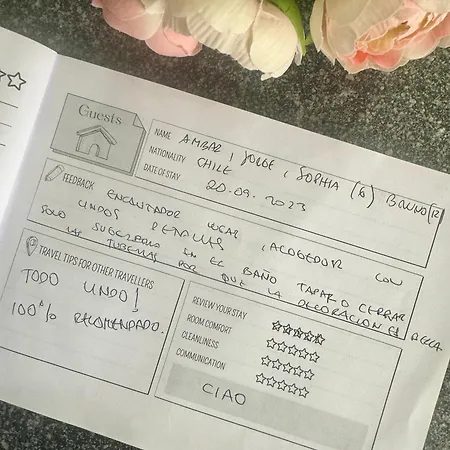 Guests
NAME AMBAR, JORGE, SOPHIA (6) BRUNO (12
NATIONALITY CHILE
DATE OF STAY 20.09.2023
FEEDBACK ENCANTADOR LUGAR, ACOGEDOR CON
LINDOS DETALLES
SOLO SUGERIRIA EN EL BAÑO TAPAR O CERRAR
LAS TUBERIAS POR QUE LA DECORACION ES BELLA.
TRAVEL TIPS FOR OTHER TRAVELLERS
TODO LINDO!
100% RECOMENDADO.
REVIEW YOUR STAY
ROOM COMFORT
CLEANLINESS
COMMUNICATION
CIAO